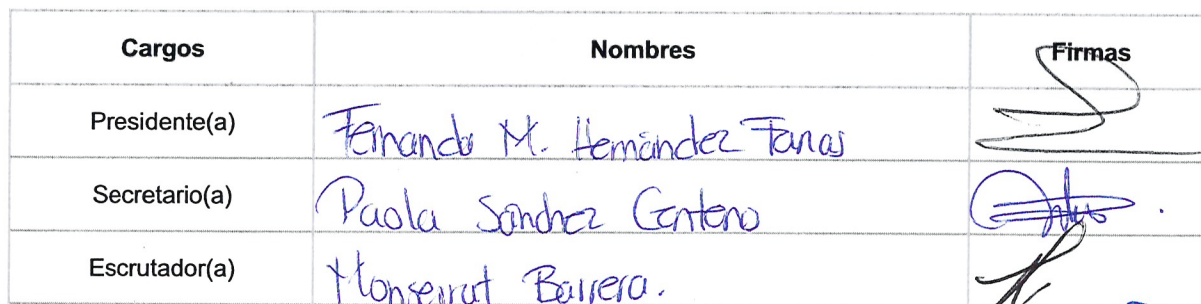 Cargos Nombres Firmas
Presidente(a) Fernando M. Hernández Farias
Secretario(a) Paola Sánchez Centeno
Escrutador(a) Monserrat Barrera.